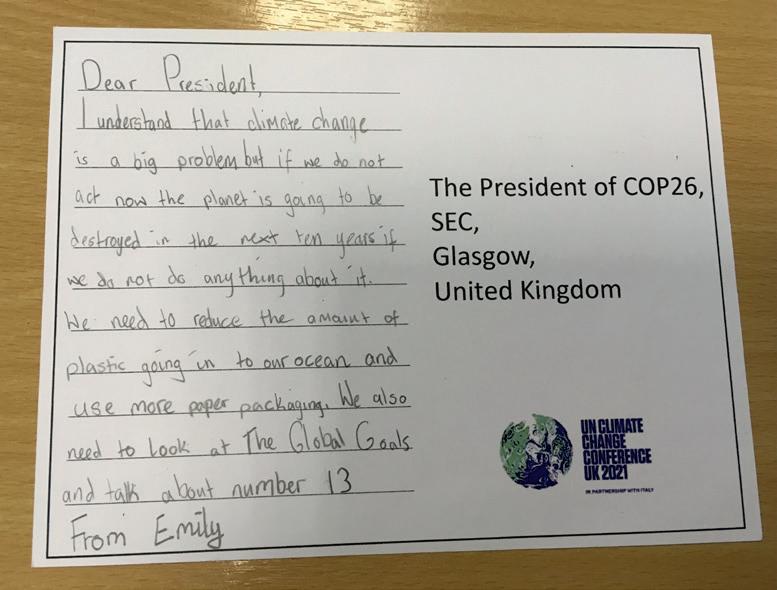 Dear President,
I understand that climate change
is a big problem but if we do not
act now the planet is going to be
destroyed in the next ten years if
we do not do anything about it.
We need to reduce the amount of
plastic going in to our ocean and
use more paper packaging. We also
need to look at The Global Goals
and talk about number 13
From Emily
The President of COP26,
SEC,
Glasgow,
United Kingdom
UN CLIMATE
CHANGE
CONFERENCE
UK 2021
IN PARTNERSHIP WITH ITALY